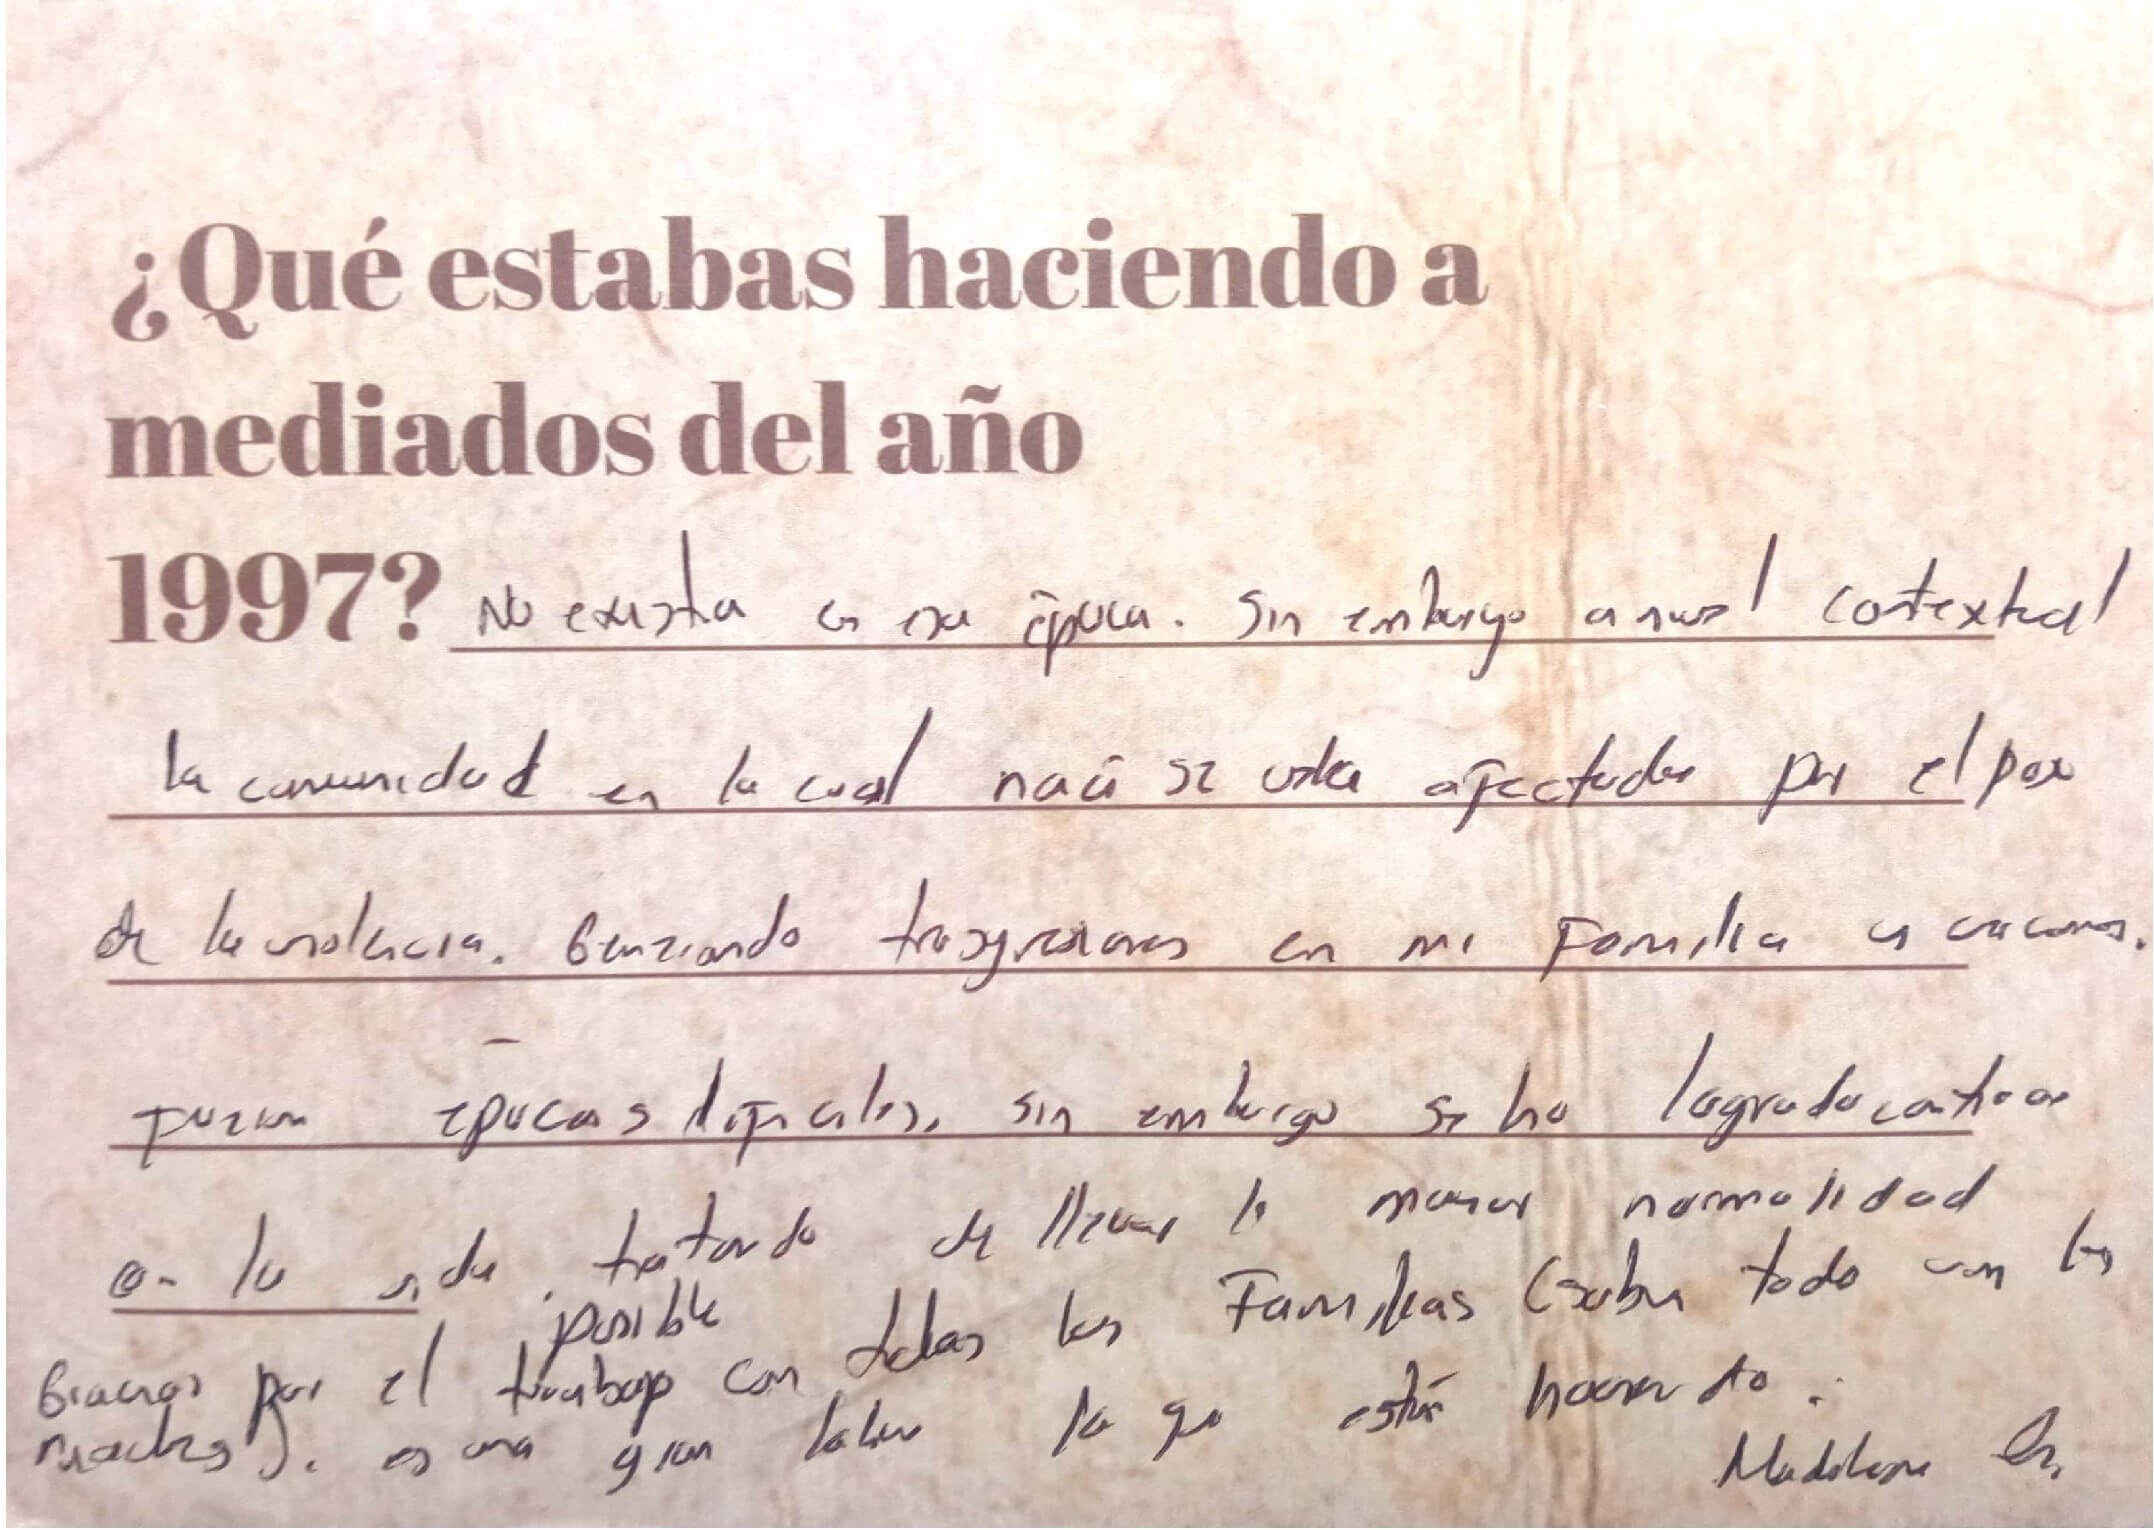 ¿Qué estabas haciendo a
mediados del año
1997? No existía en esa época. Sin embargo a nivel contextual
la comunidad en la cual nací se veía afectada por el paso
de la violencia. Generando trasgresiones en mi Familia
Fueron épocas difíciles, sin embargo se ha logrado continuar
en la vida, tratando de llevar la mayor normalidad
posible
Gracias por el trabajo con todas las Familias (sobre todo con las
madres). es una gran labor la que están haciendo.